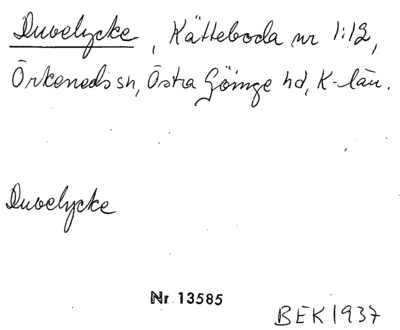 Duvelycke, Kätteboda nr 1:12,
Örkeneds sn, Östra Göinge hd, K-län.
Duvelycke
Nr 13585
BEK 1937